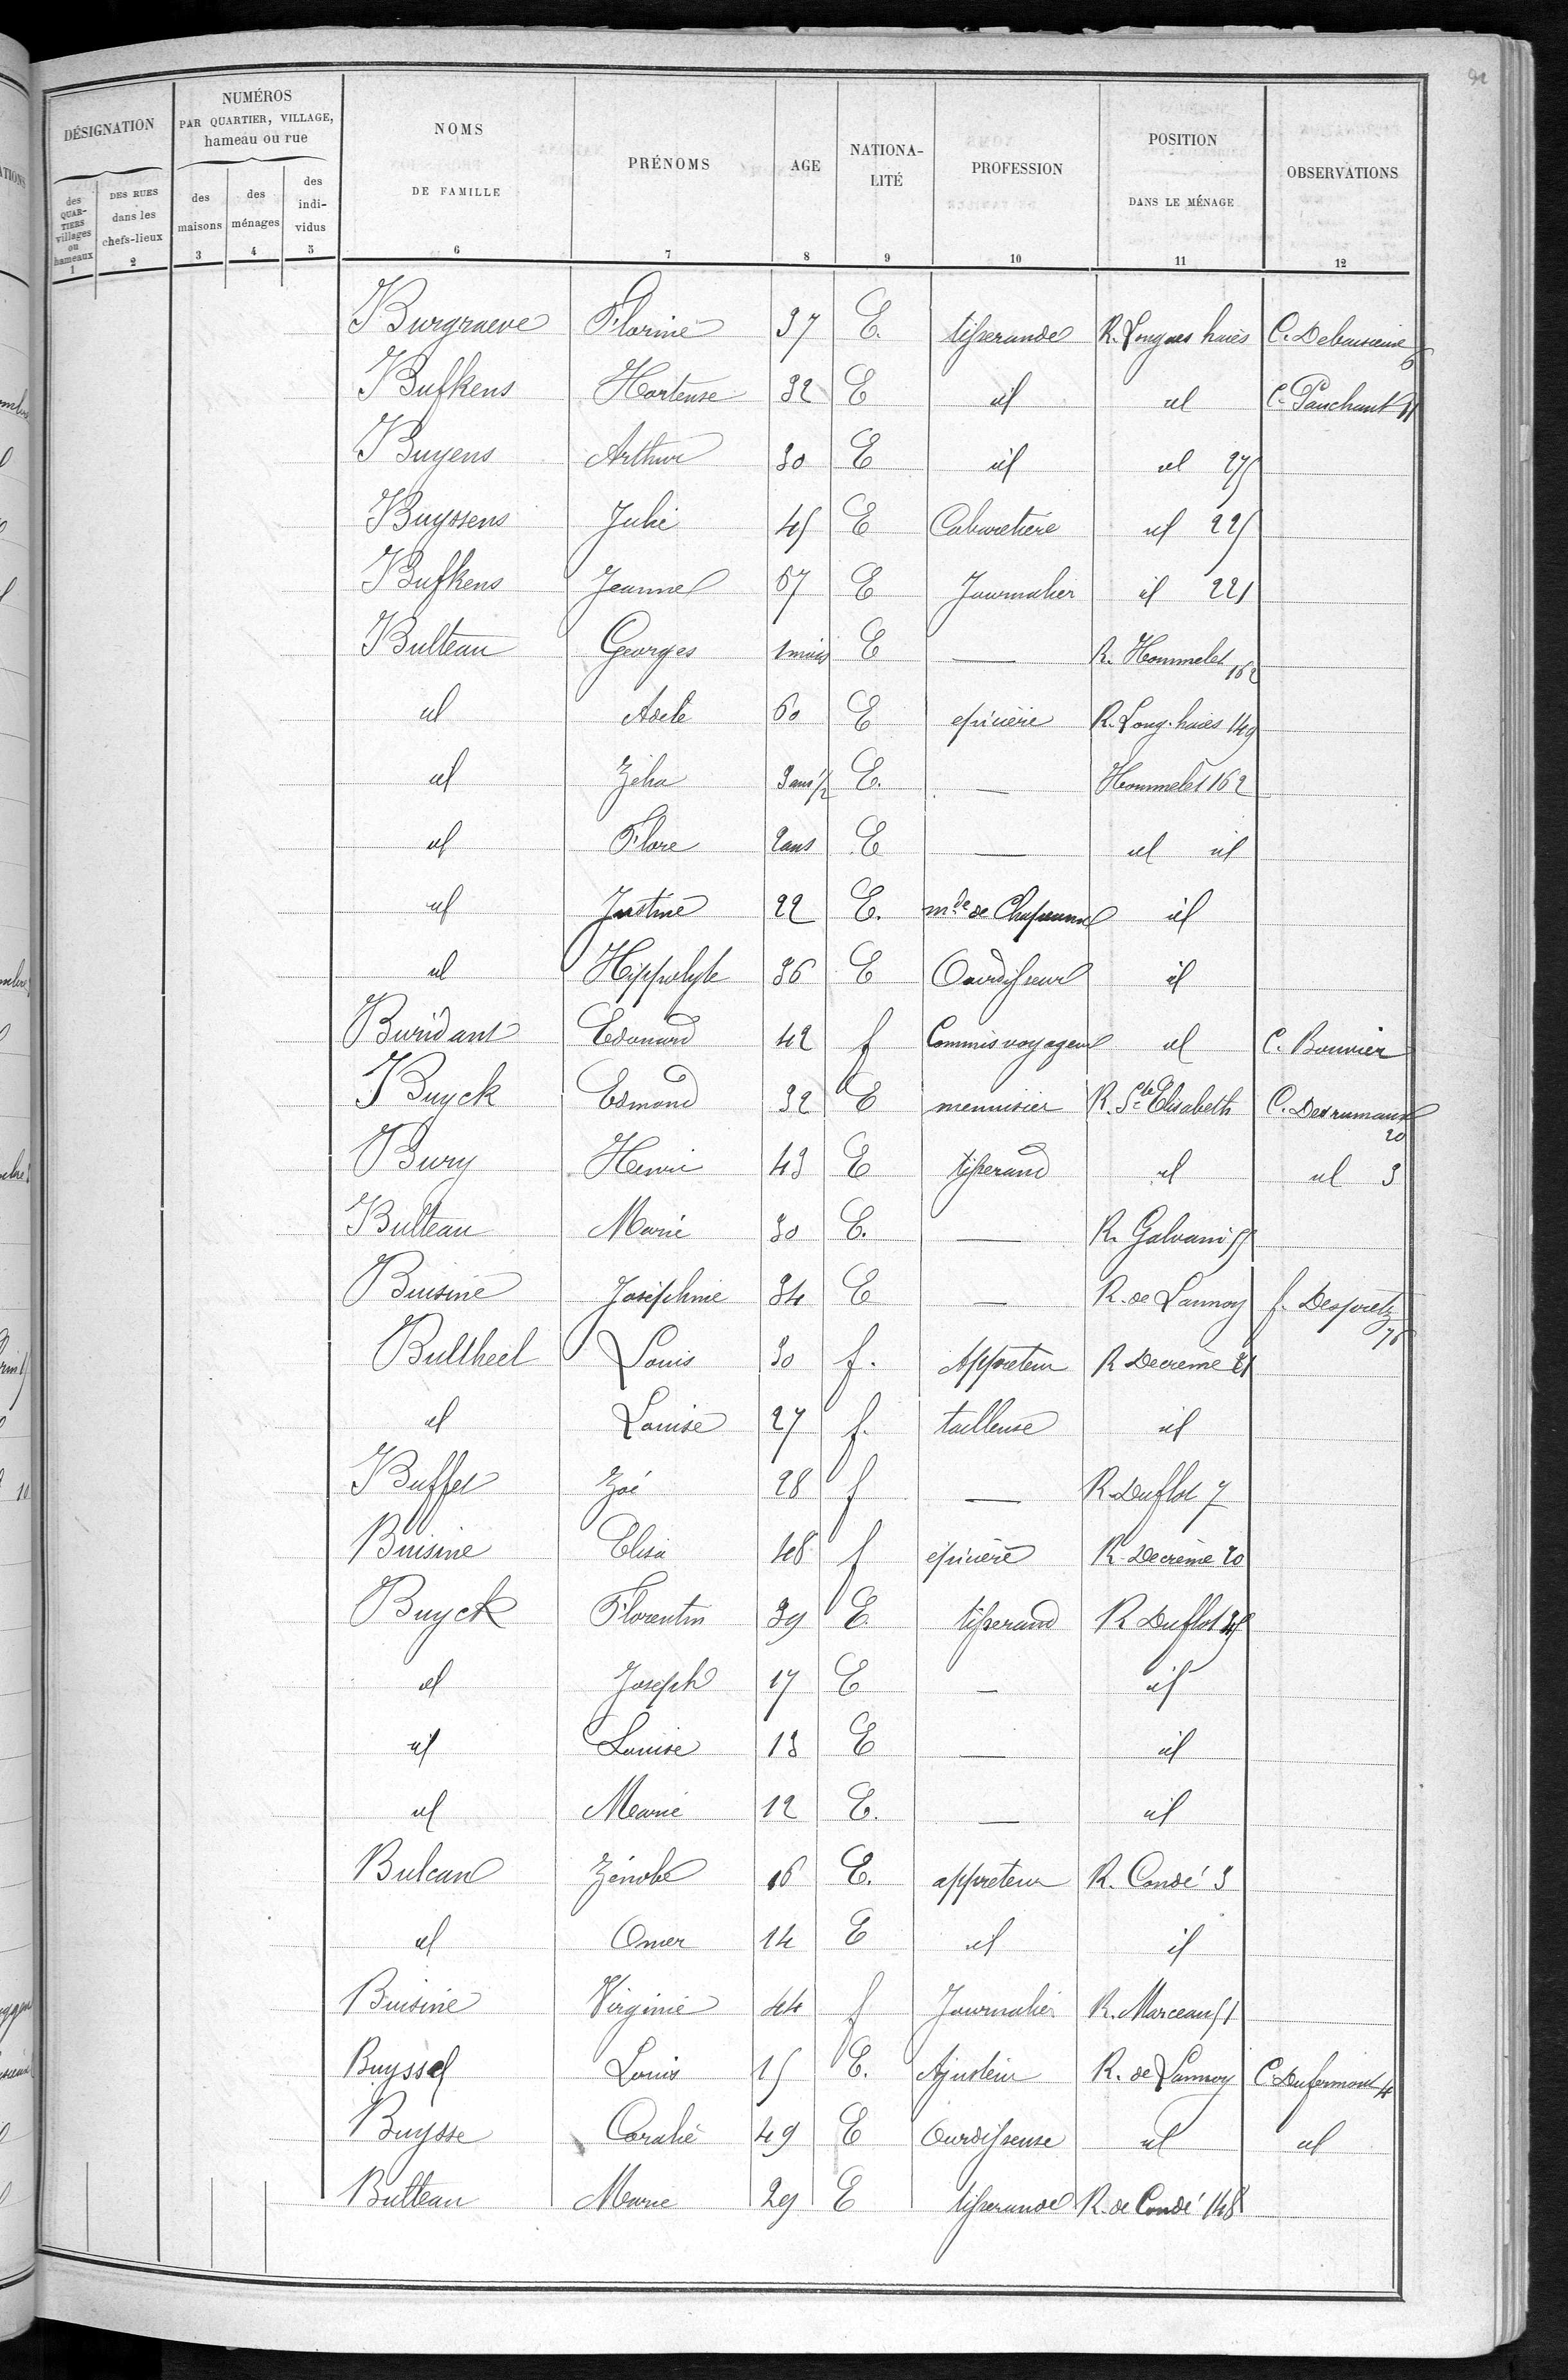 DÉSIGNATION
NUMÉROS
PAR QUARTIER, VILLAGE,
hameau ou rue
NOMS
DE FAMILLE
PRÉNOMS
AGE
NATIONA-
LITÉ
PROFESSION
POSITION
DANS LE MÉNAGE
OBSERVATIONS
des QUAR-TIERS villages ou hameaux
DES RUES dans les chefs-lieux
des maisons
des ménages
des indi-vidus
1 2 3 4 5 6 7 8 9 10 11 12
Burgraeve Florine 37 E. tisserande R. Longues haies C. Debuisseine
Bufkens Hortense 32 E id id C. Pauchant 11
Buyens Arthur 30 E id id 275
Buyssens Julie 45 E Cabaretière id 225
Bufkens Jeanne 67 E Journalier id 221
Bulteau Georges 1 mois E — R. Hommelet 162
id Adele 60 E epicière R. Long. haies 149
id Zélia 3 ans 1/2 E. — Hommelet 162
id Flore 2 ans E — id id
id Justine 22 E. mde de Chapeaux id
id Hippolyte 36 E Ourdisseur id
Buridant Edouard 42 f Commis voyageur id C. Bouvier
Buyck Edmond 32 E menuisier R. Ste Elisabeth C. Desrumaux 20
Bury Henri 43 E tisserand id id 3
Bulteau Marie 30 E. — R. Galvani 55
Buisine Joséphine 34 E — R. de Lannoy f. Despretz 76
Bultheel Louis 30 f. Appreteur R Decrème 21
id Louise 27 f. tailleuse id
Buffet Zoé 28 f — R. Duflot 7
Buisine Elisa 48 f épicière R. Decrème 20
Buyck Florentin 39 E tisserand R Duflot 35
id Joseph 17 E — id
id Louise 13 E — id
id Marie 12 E. — id
Bulcan Zénobe 16 E. appreteur R. Condé 3
id Omer 14 E id id
Buisine Virginie 44 f Journalier R. Marceau 51
Buysse Louis 15 E. Ajusteur R. de Lannoy C. Dufermont 4
Buysse Coralie 49 E Ourdisseuse id id
Bulteau Marie 29 E tisserande R. de Condé 148